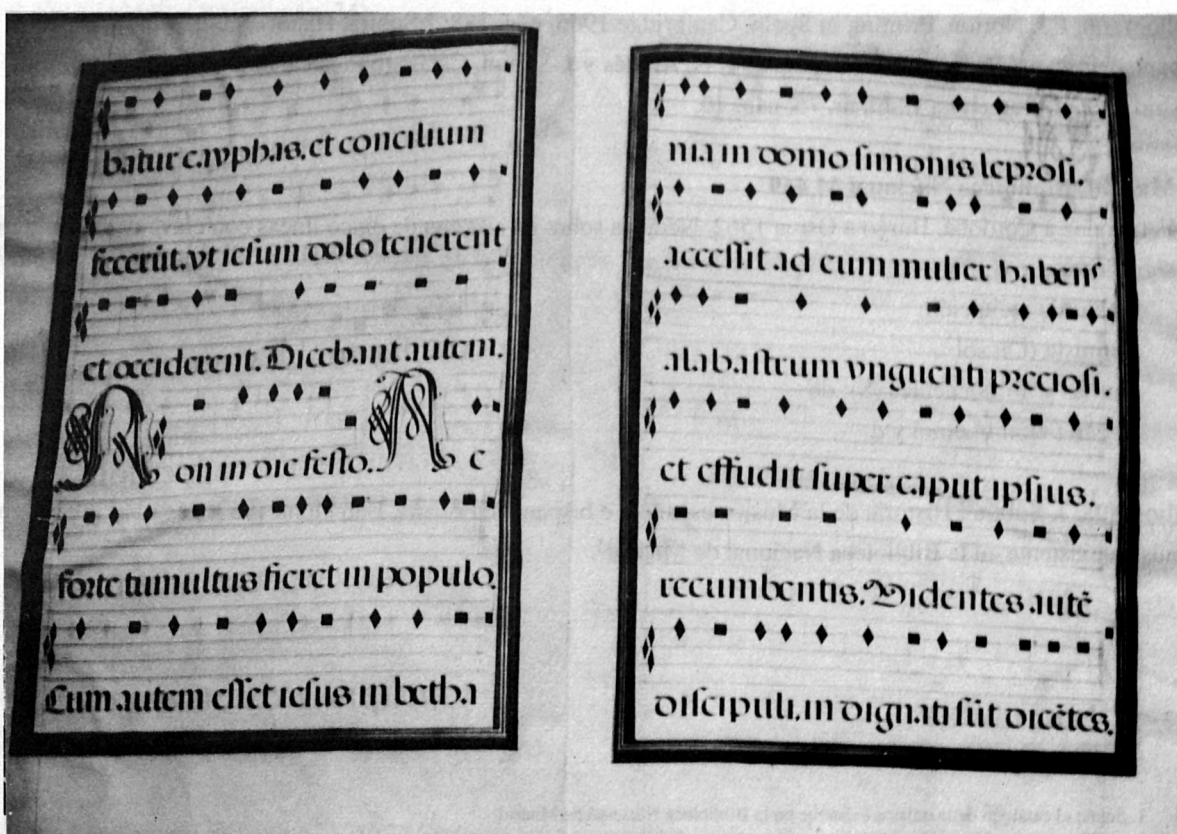 batur cayphas. et concilium
fecerūt. vt iesum dolo tenerent
et occiderent. Dicebant autem.
Non in die festo. Ne
forte tumultus fieret in populo.
Cum autem esset iesus in betha
nia in domo simonis leprosi.
accessit ad eum mulier habens
alabastrum vnguenti preciosi.
et effudit super caput ipsius.
recumbentis. Videntes autē
discipuli. in dignati sūt dicētes.